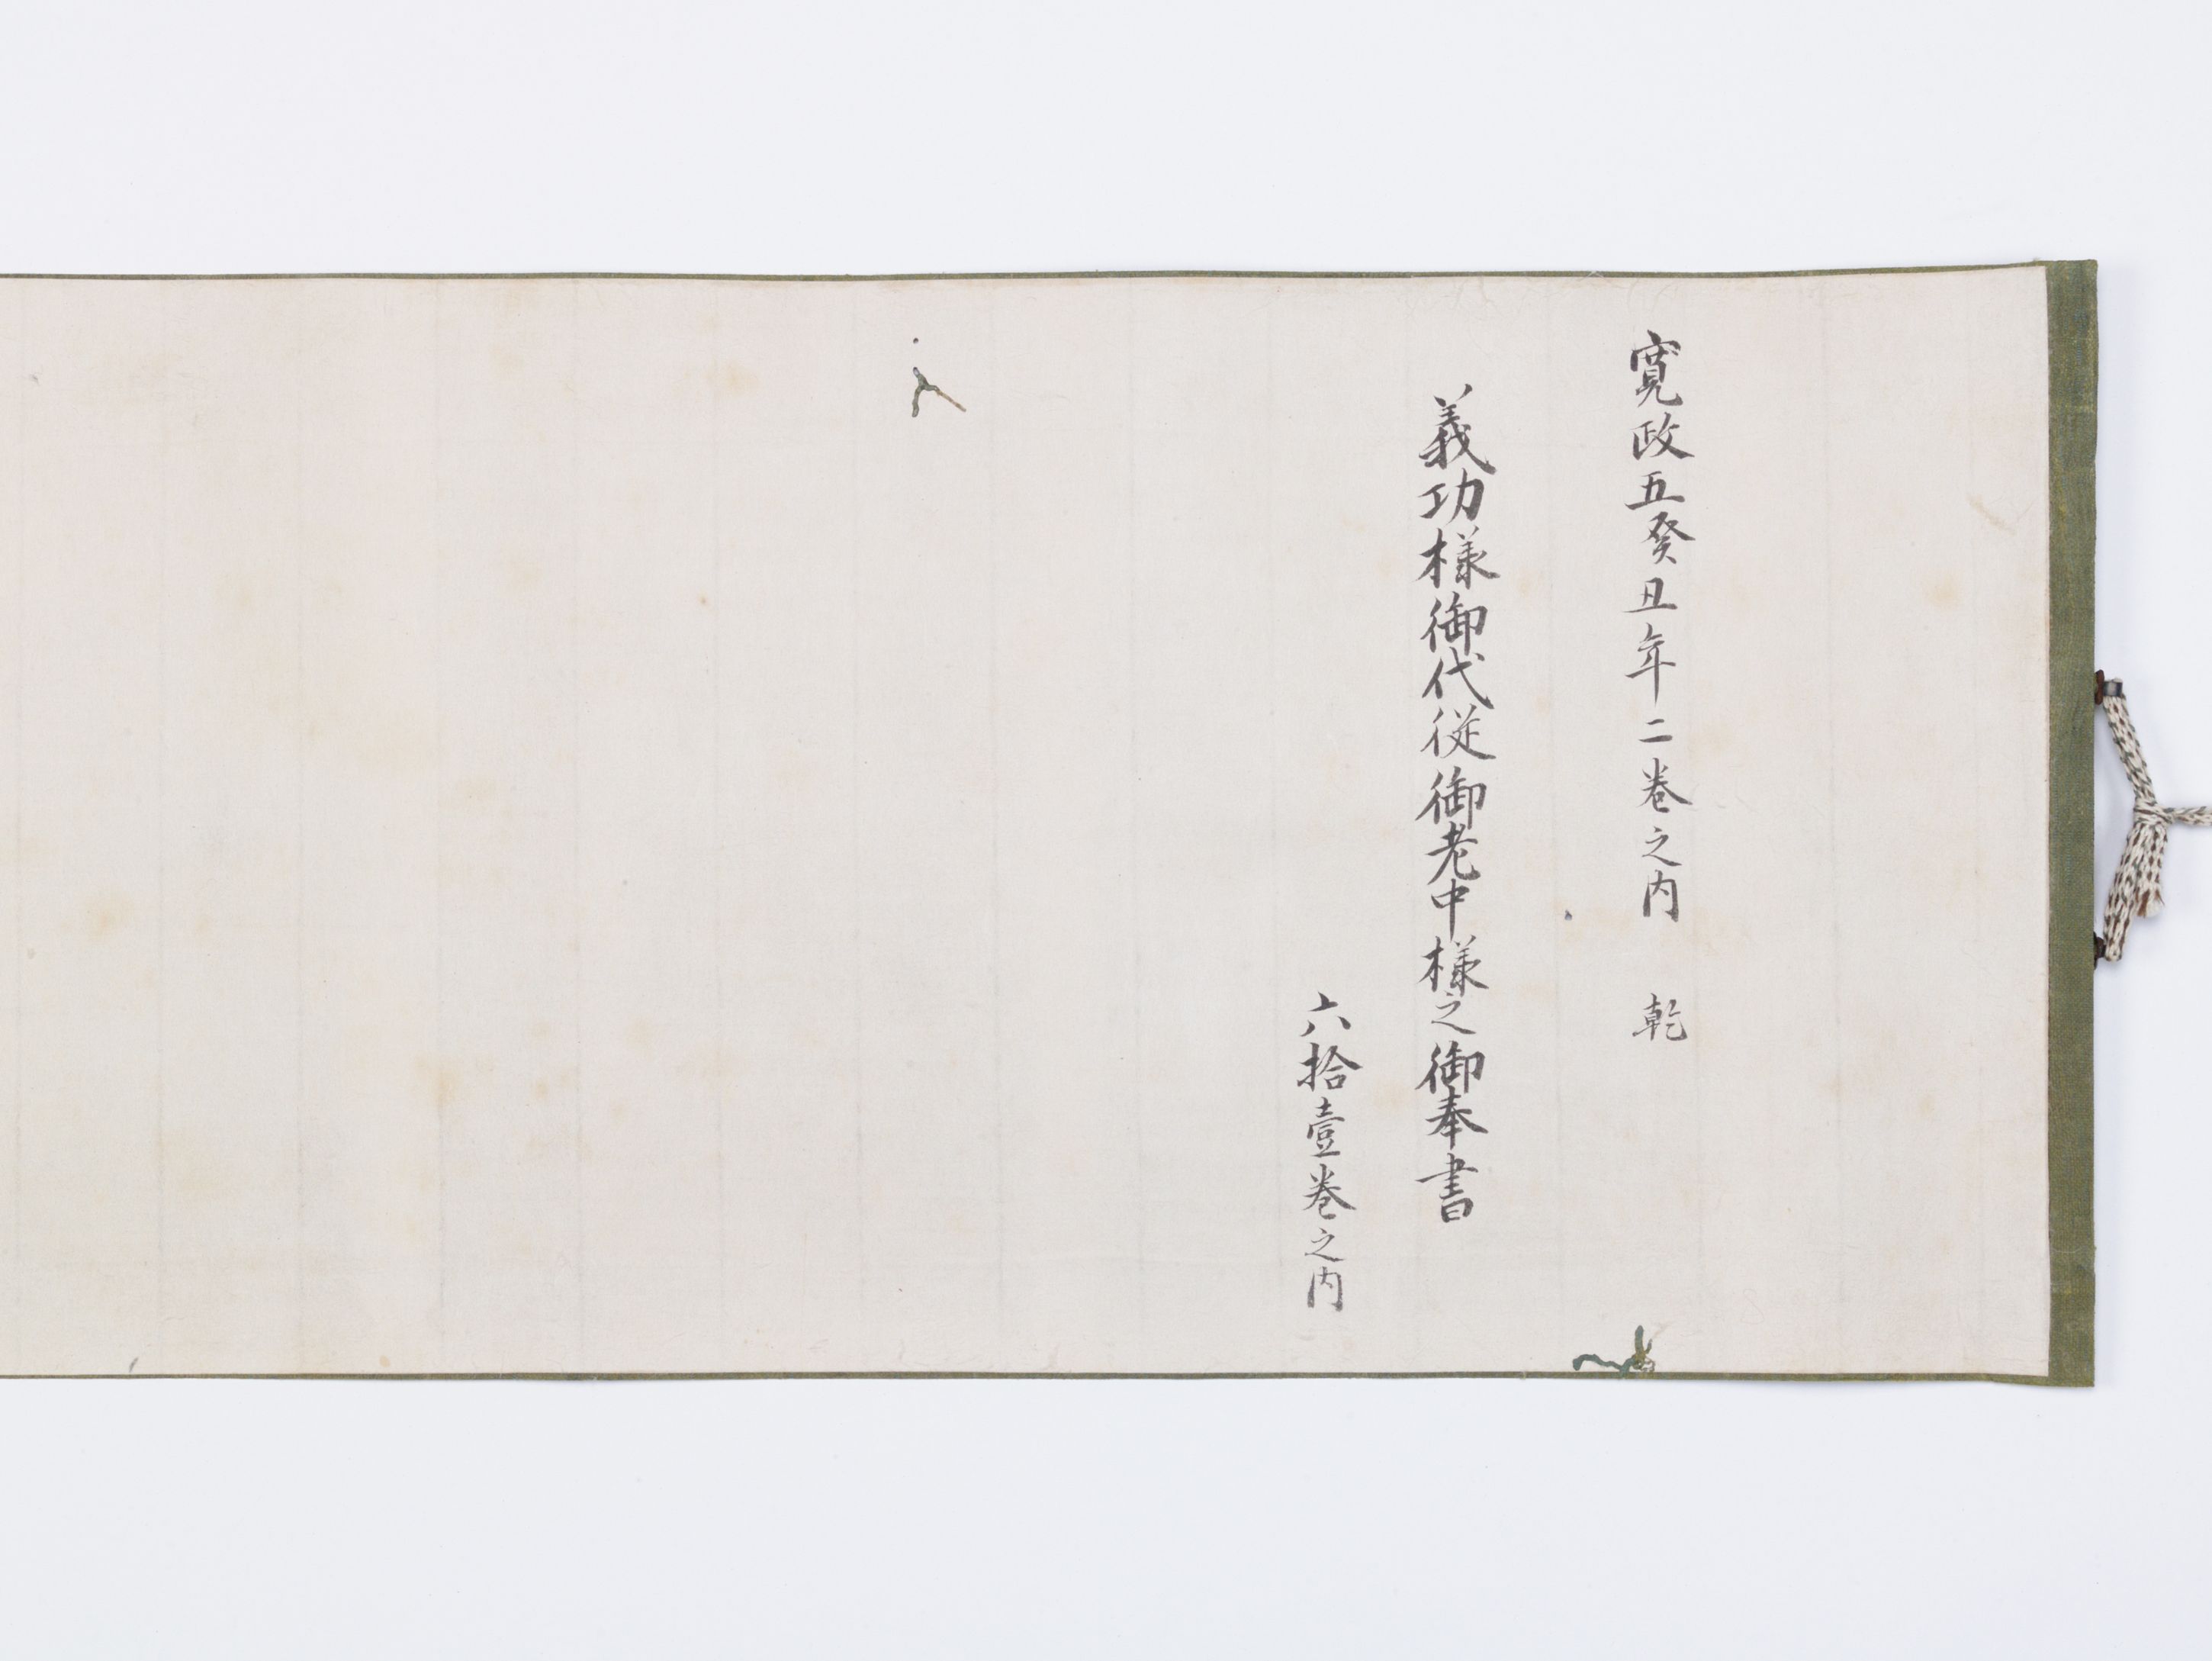 寛政五癸丑年二巻之内　乾
義功様御代従御老中様之御奉書
六拾壹巻之内